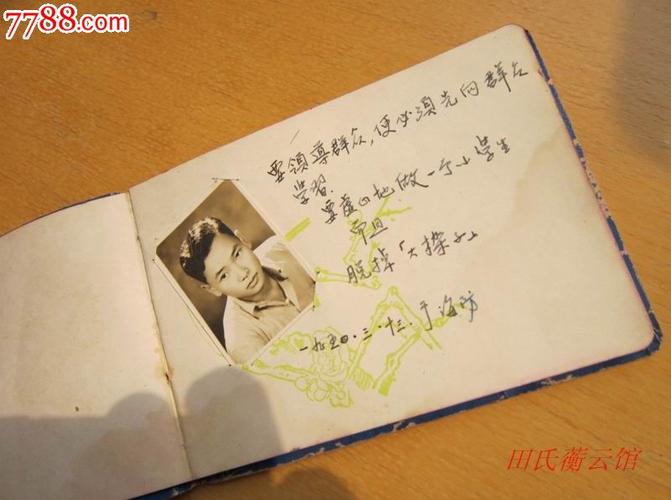 7788.com
要领导群众,便必须先向群众
学习.
要虚心地做一个小学生
而且
脱掉「大褂子」
一九五〇.三.十三.于海防
田氏蘅云馆